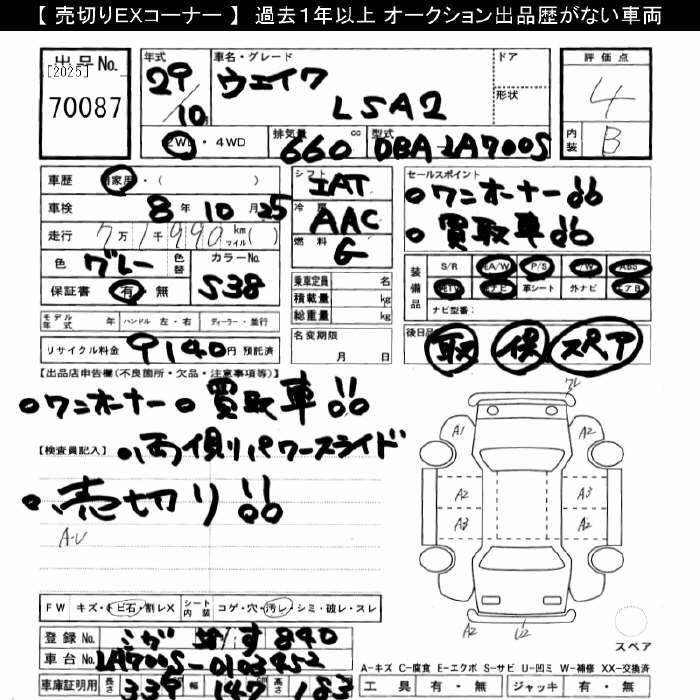 【 売切りEXコーナー 】 過去１年以上 オークション出品歴がない車両
出品No.
[2025]
70087
年式
29/10
車名・グレード
ウェイク
LSA2
ドア
形状
評価点
4
内装
B
2WD・4WD
排気量
660
cc
型式
DBA-LA700S
車歴
自家用・( )
車検
8年10月25
走行
7万1千990
km
マイル( )
色
グレー
色替
カラーNo.
S38
保証書
有・無
シフト
IAT
冷房
AAC
燃料
G
セールスポイント
ワンオーナー!!
買取車!!
装備品
S/R
A/W
P/S
P/W
ABS
革シート
外ナビ
エアB
ナビ型番:
モデル年式
年
ハンドル
左・右
ディーラー・並行
リサイクル料金
9140円
預託済
乗車定員
名
積載量
kg
総重量
kg
名変期限
月 日
後日品
取
保
スペア
【出品店申告欄(不良箇所・欠品・注意事項等)】
ワンオーナー 買取車!!
両側パワースライド
【検査員記入】
売切り!!
A-U
A1
A2
A2
A3
A3
A2
A2
U2
スペア
FW
キズ・トビ石・割レX
シート内装
コゲ・穴・汚レ・シミ・破レ・スレ
登録No.
840
車台No.
LA700S-0103452
車庫証明用
長さ
339
幅
147
高さ
183
A-キズ C-腐食 E-エクボ S-サビ U-凹ミ W-補修 XX-交換済
工具
有・無
ジャッキ
有・無